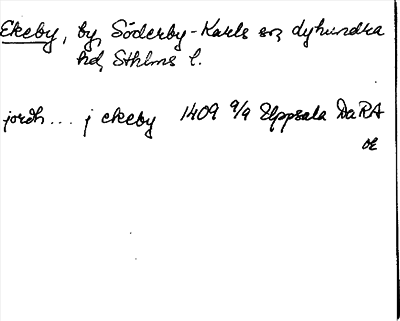 Ekeby, by, Söderby-Karls sn, dyhundra
hd, Sthlms l.
jordh ... j ekeby 1409 9/9 Uppsala DaRA
OE